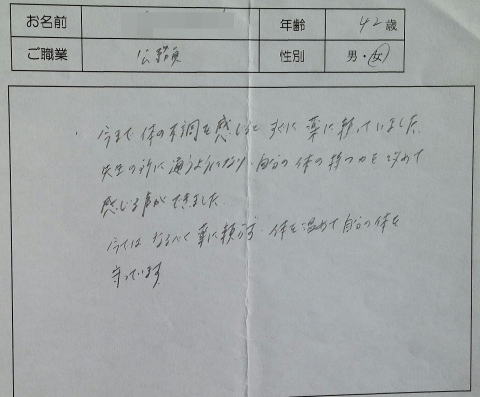 お名前 年齢 42歳
ご職業 公務員 性別 男・女
今まで体の不調を感じるとすぐに薬に頼っていました。
先生の所に通うようになり、自分の体の持つ力を改めて
感じる事ができました。
今ではなるべく薬に頼らず、体を温めて自分の体を
守っています。